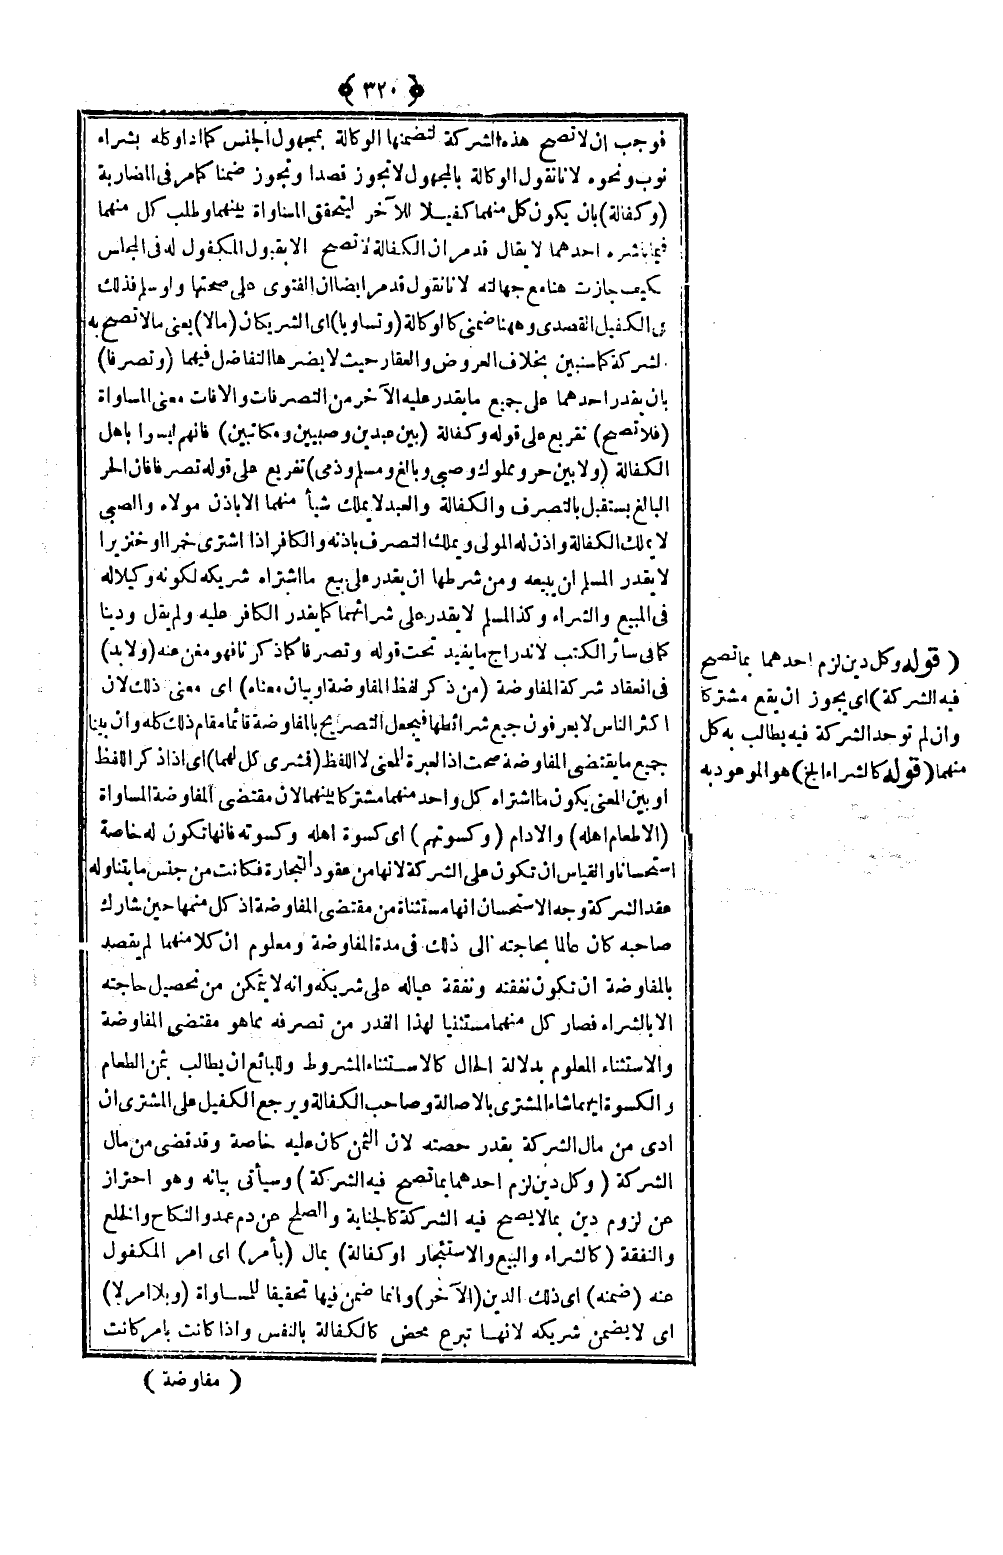 ﴿ ٣٢٠ ﴾
فوجب ان لا تصح هذه الشركة لتضمنها الوكالة بمجهول الجنس كما اذا وكله بشراء
ثوب ونحوه لانا نقول الوكالة بالمجهول لا تجوز قصدا وتجوز ضمنا كما مر فى المضاربة
(وكفالة) بان يكون كل منهما كفيلا للآخر ليتحقق المساواة بينهما وطلب كل منهما
فيما باشره احدهما لا يقال قد مر ان الكفالة لا تصح الا بقبول المكفول له فى المجلس
فكيف جازت هنا مع جهالته لانا نقول قد مر ايضا ان الفتوى على صحتها ولو سلم فذلك
فى الكفيل القصدى وههنا ضمنى كالوكالة (وتساويا) اى الشريكان (مالا) يعنى مالا تصح به
الشركة كما سنبين بخلاف العروض والعقار حيث لا يضرها التفاضل فيهما (وتصرفا)
بان يقدر احدهما على جميع ما يقدر عليه الآخر من التصرفات والا فات معنى المساواة
(فلا تصح) تفريع على قوله وكفالة (بين عبدين وصبيين ومكاتبين) فانهم ليسوا باهل
الكفالة (ولا بين حر ومملوك وصبى وبالغ ومسلم وذمى) تفريع على قوله تصرفا فان الحر
البالغ يستقل بالتصرف والكفالة والعبد لا يملك شيأ منهما الا باذن مولاه والصبى
لا يملك الكفالة واذن له المولى ويملك التصرف باذنه والكافر اذا اشترى خمرا او خنزيرا
لا يقدر المسلم ان يبيعه ومن شرطها ان يقدر على بيع ما اشتراه شريكه لكونه وكيلا له
فى البيع والشراء وكذا المسلم لا يقدر على شرائهما كما يقدر الكافر عليه ولم يقل ودينا
كما فى سائر الكتب لاندراج ما يفيد تحت قوله وتصرفا كما ذكرنا فهو مغن عنه (ولابد)
فى انعقاد شركة المفاوضة (من ذكر لفظ المفاوضة او بيان معناه) اى معنى ذلك لان
اكثر الناس لا يعرفون جميع شرائطها فيجعل التصريح بالمفاوضة قائما مقام ذلك كله وان بينا
جميع ما يقتضى المفاوضة صحت اذا العبرة للمعنى لا اللفظ (فشرى كل لهما) اى اذا ذكر اللفظ
او بين المعنى يكون ما اشتراه كل واحد منهما مشتركا بينهما لان مقتضى المفاوضة المساواة
(الا طعام اهله) والادام (وكسوتهم) اى كسوة اهله وكسوته فانها تكون له خاصة
استحسانا والقياس ان تكون على الشركة لانها من عقود التجارة فكانت من جنس ما يتناوله
عقد الشركة وجه الاستحسان انها مستثناة من مقتضى المفاوضة اذ كل منهما حين شارك
صاحبه كان عالما بحاجته الى ذلك فى مدة المفاوضة ومعلوم ان كلا منهما لم يقصد
بالمفاوضة ان تكون نفقته ونفقة عياله على شريكه وانه لا يتمكن من تحصيل حاجته
الا بالشراء فصار كل منهما مستثنيا لهذا القدر من تصرفه بما هو مقتضى المفاوضة
والاستثناء المعلوم بدلالة الحال كالاستثناء المشروط وللبائع ان يطالب بثمن الطعام
والكسوة ايهما شاء المشترى بالاصالة وصاحب الكفالة ويرجع الكفيل على المشترى ان
ادى من مال الشركة بقدر حصته لان الثمن كان عليه خاصة وقد قضى من مال
الشركة (وكل دين لزم احدهما بما تصح فيه الشركة) وسيأتى بيانه وهو احتراز
عن لزوم دين بما لا يصح فيه الشركة كالجناية والصلح عن دم عمد والنكاح والخلع
والنفقة (كالشراء والبيع والاستئجار او كفالة) بمال (بأمر) اى امر المكفول
عنه (ضمنه) اى ذلك الدين (الآخر) وانما ضمن فيها تحقيقا للمساواة (وبلا امر لا)
اى لا يضمن شريكه لانها تبرع محض كالكفالة بالنفس واذا كانت بامر كانت
(مفاوضة)
(قوله وكل دين لزم احدهما بما تصح
فيه الشركة) اى يجوز ان يقع مشتركا
وان لم توجد الشركة فيه يطالب به كل
منهما (قوله كالشراء الخ) هو الموعود به